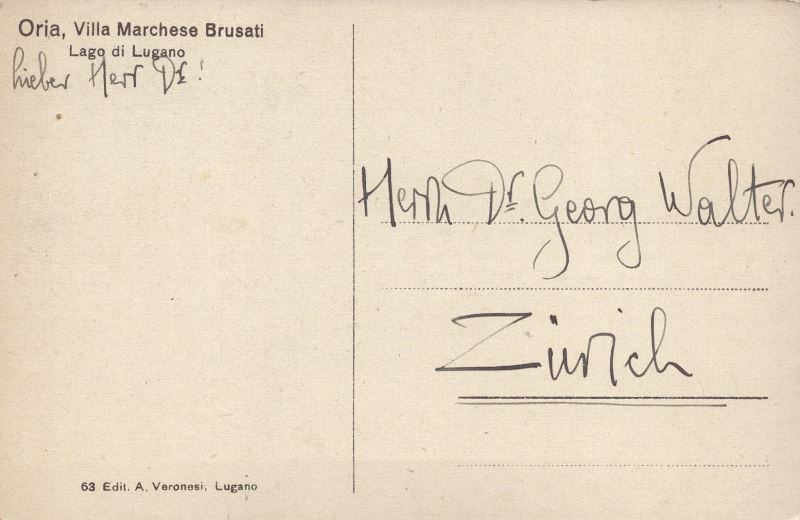 Oria, Villa Marchese Brusati
Lago di Lugano
Lieber Herr Dr!
Herrn Dr. Georg Walter.
Zürich
63 Edit. A. Veronesi, Lugano